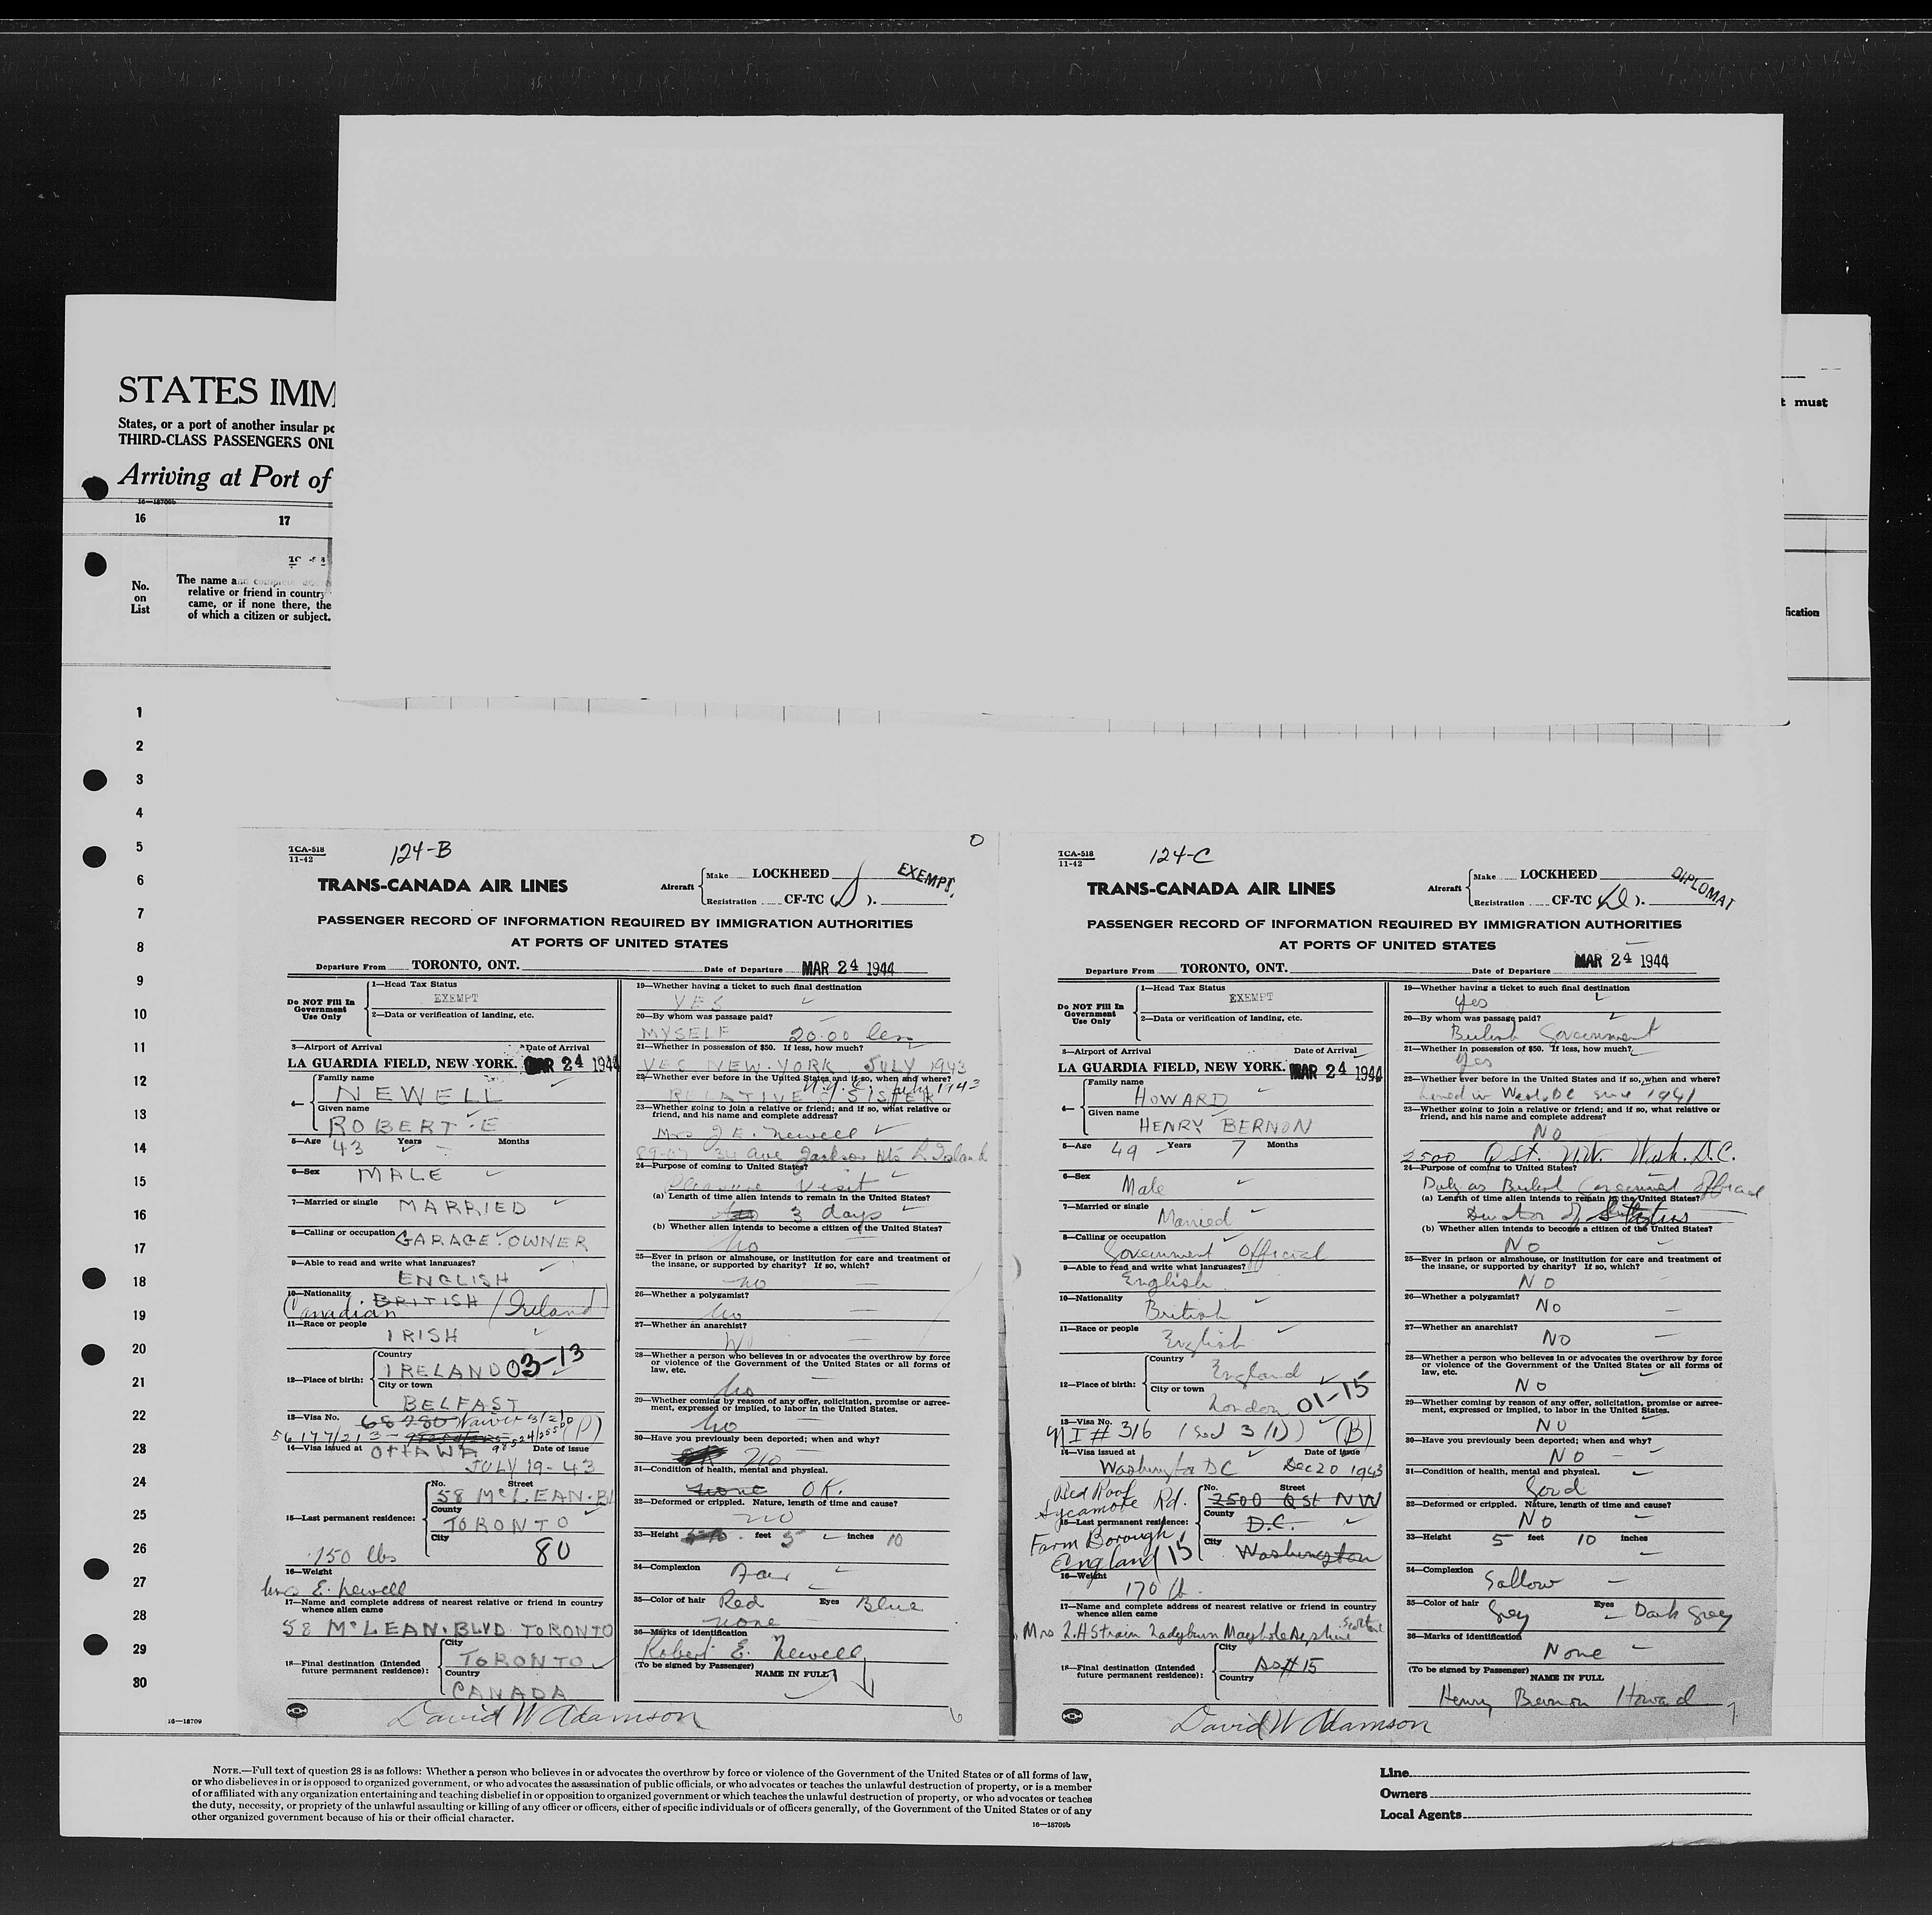 STATES IMM
States, or a port of another insular po
THIRD-CLASS PASSENGERS ONL
Arriving at Port of
16—18709b
16
17
No.
on
List
The name and complete
relative or friend in country
came, or if none there, the
of which a citizen or subject.
t must
fication
1
2
3
4
5
6
7
8
9
10
11
12
13
14
15
16
17
18
19
20
21
22
23
24
25
26
27
28
29
30
16—18709
TCA-518
11-42
124-B
0
TRANS-CANADA AIR LINES
Aircraft
Make LOCKHEED
Registration CF-TC (D).
EXEMPT
PASSENGER RECORD OF INFORMATION REQUIRED BY IMMIGRATION AUTHORITIES
AT PORTS OF UNITED STATES
Departure From TORONTO, ONT. Date of Departure MAR 24 1944
Do NOT Fill In
Government
Use Only
1—Head Tax Status
EXEMPT
2—Data or verification of landing, etc.
3—Airport of Arrival Date of Arrival
LA GUARDIA FIELD, NEW YORK. MAR 24 1944
4—
Family name
NEWELL
Given name
ROBERT. E
5—Age 43 Years Months
6—Sex MALE
7—Married or single MARRIED
8—Calling or occupation GARAGE. OWNER
9—Able to read and write what languages?
ENGLISH
10—Nationality BRITISH / Ireland
Canadian
11—Race or people
IRISH
12—Place of birth:
Country
IRELAND 03-13
City or town
BELFAST
13—Visa No. 68280 Waiver
56177/213
14—Visa issued at OTTAWA Date of issue
JULY 19-43
15—Last permanent residence:
No. Street
58 McLEAN. Bl
County
TORONTO
City
80
150 lbs
16—Weight
Mrs E. Newell
17—Name and complete address of nearest relative or friend in country
whence alien came
58 McLEAN. BLVD TORONTO
18—Final destination (Intended
future permanent residence):
City
TORONTO
Country
CANADA
David W Adamson
19—Whether having a ticket to such final destination
YES
20—By whom was passage paid?
MYSELF 20.00 less
21—Whether in possession of $50. If less, how much?
YES NEW. YORK JULY 1943
22—Whether ever before in the United States and if so, when and where?
N.Y.C. July 1943
RELATIVE SISTER
23—Whether going to join a relative or friend; and if so, what relative or
friend, and his name and complete address?
Mrs J. E. Newell
34 ave Jackson Hts L. Island
24—Purpose of coming to United States?
Pleasure Visit
(a) Length of time alien intends to remain in the United States?
3 days
(b) Whether alien intends to become a citizen of the United States?
No
25—Ever in prison or almshouse, or institution for care and treatment of
the insane, or supported by charity? If so, which?
no
26—Whether a polygamist?
No
27—Whether an anarchist?
No
28—Whether a person who believes in or advocates the overthrow by force
or violence of the Government of the United States or all forms of
law, etc.
No
29—Whether coming by reason of any offer, solicitation, promise or agree-
ment, expressed or implied, to labor in the United States.
No
30—Have you previously been deported; when and why?
No
31—Condition of health, mental and physical.
none O.K.
32—Deformed or crippled. Nature, length of time and cause?
no
33—Height feet 5 inches 10
34—Complexion Fair
35—Color of hair Red Eyes Blue
none
36—Marks of identification
Robert E. Newell
(To be signed by Passenger) NAME IN FULL
TCA-518
11-42
124-C
TRANS-CANADA AIR LINES
Aircraft
Make LOCKHEED
Registration CF-TC (D).
DIPLOMAT
PASSENGER RECORD OF INFORMATION REQUIRED BY IMMIGRATION AUTHORITIES
AT PORTS OF UNITED STATES
Departure From TORONTO, ONT. Date of Departure MAR 24 1944
Do NOT Fill In
Government
Use Only
1—Head Tax Status
EXEMPT
2—Data or verification of landing, etc.
3—Airport of Arrival Date of Arrival
LA GUARDIA FIELD, NEW YORK. MAR 24 1944
4—
Family name
HOWARD
Given name
HENRY BERNON
5—Age 49 Years 7 Months
6—Sex Male
7—Married or single Married
8—Calling or occupation
Government Official
9—Able to read and write what languages?
English
10—Nationality British
11—Race or people English
12—Place of birth:
Country
England
City or town
London 01-15
13—Visa No.
I # 316 (Sec 3(1)) (B)
14—Visa issued at Date of issue
Washington DC Dec 20 1943
Red Roof
Sycamore Rd.
15—Last permanent residence:
Farm Borough
England 15
No. Street
2500 Q St NW
County
D.C.
City
Washington
16—Weight
170 lb.
17—Name and complete address of nearest relative or friend in country
whence alien came
Mrs L.H Strain Ladyburn Maybole Ayrshire Scotland
18—Final destination (Intended
future permanent residence):
City
As # 15
Country
David W Adamson
19—Whether having a ticket to such final destination
Yes
20—By whom was passage paid?
British Government
21—Whether in possession of $50. If less, how much?
Yes
22—Whether ever before in the United States and if so, when and where?
Lived in Wash. DC since 1941
23—Whether going to join a relative or friend; and if so, what relative or
friend, and his name and complete address?
NO
2500 Q St. N.W. Wash. D.C.
24—Purpose of coming to United States?
Duty as British Government Official
(a) Length of time alien intends to remain in the United States?
Duration of Status
(b) Whether alien intends to become a citizen of the United States?
NO
25—Ever in prison or almshouse, or institution for care and treatment of
the insane, or supported by charity? If so, which?
NO
26—Whether a polygamist?
NO
27—Whether an anarchist?
NO
28—Whether a person who believes in or advocates the overthrow by force
or violence of the Government of the United States or all forms of
law, etc.
NO
29—Whether coming by reason of any offer, solicitation, promise or agree-
ment, expressed or implied, to labor in the United States.
NO
30—Have you previously been deported; when and why?
NO
31—Condition of health, mental and physical.
Good
32—Deformed or crippled. Nature, length of time and cause?
NO
33—Height 5 feet 10 inches
34—Complexion Sallow
35—Color of hair Grey Eyes Dark Grey
36—Marks of identification
None
(To be signed by Passenger) NAME IN FULL
Henry Bernon Howard
NOTE.—Full text of question 28 is as follows: Whether a person who believes in or advocates the overthrow by force or violence of the Government of the United States or of all forms of law,
or who disbelieves in or is opposed to organized government, or who advocates the assassination of public officials, or who advocates or teaches the unlawful destruction of property, or is a member
of or affiliated with any organization entertaining and teaching disbelief in or opposition to organized government or which teaches the unlawful destruction of property, or who advocates or teaches
the duty, necessity, or propriety of the unlawful assaulting or killing of any officer or officers, either of specific individuals or of officers generally, of the Government of the United States or of any
other organized government because of his or their official character.
16—18709b
Line
Owners
Local Agents